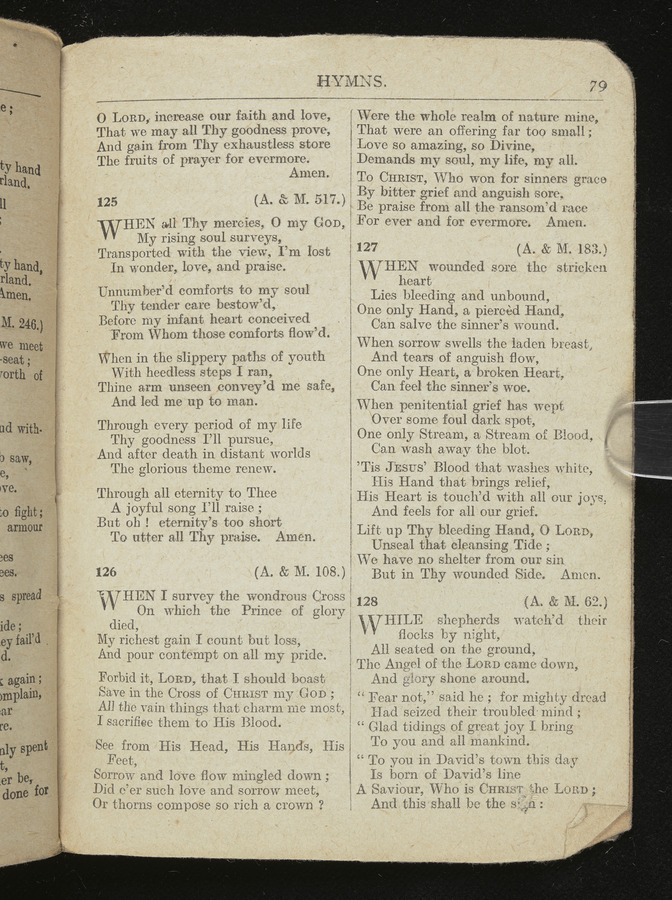 e;
ty hand
rland.
ll
;
ty hand,
rland.
Amen.
M. 246.)
we meet
-seat;
worth of
ud with-
o saw,
e,
ve.
to fight;
armour
ees
ees.
s spread
ide;
ey fail'd
d.
again;
omplain,
ar
re.
nly spent
t,
er be,
done for
HYMNS. 79
O LORD, increase our faith and love,
That we may all Thy goodness prove,
And gain from Thy exhaustless store
The fruits of prayer for evermore.
Amen.
125 (A. & M. 517.)
WHEN all Thy mercies, O my GOD,
My rising soul surveys,
Transported with the view, I'm lost
In wonder, love, and praise.
Unnumber'd comforts to my soul
Thy tender care bestow'd,
Before my infant heart conceived
From Whom those comforts flow'd.
When in the slippery paths of youth
With heedless steps I ran,
Thine arm unseen convey'd me safe,
And led me up to man.
Through every period of my life
Thy goodness I'll pursue,
And after death in distant worlds
The glorious theme renew.
Through all eternity to Thee
A joyful song I'll raise;
But oh! eternity's too short
To utter all Thy praise. Amen.
126 (A. & M. 108.)
WHEN I survey the wondrous Cross
On which the Prince of glory
died,
My richest gain I count but loss,
And pour contempt on all my pride.
Forbid it, LORD, that I should boast
Save in the Cross of CHRIST my GOD;
All the vain things that charm me most,
I sacrifice them to His Blood.
See from His Head, His Hands, His
Feet,
Sorrow and love flow mingled down;
Did e'er such love and sorrow meet,
Or thorns compose so rich a crown?
Were the whole realm of nature mine,
That were an offering far too small;
Love so amazing, so Divine,
Demands my soul, my life, my all.
To CHRIST, Who won for sinners grace
By bitter grief and anguish sore,
Be praise from all the ransom'd race
For ever and for evermore. Amen.
127 (A. & M. 183.)
WHEN wounded sore the stricken
heart
Lies bleeding and unbound,
One only Hand, a piercèd Hand,
Can salve the sinner's wound.
When sorrow swells the laden breast,
And tears of anguish flow,
One only Heart, a broken Heart,
Can feel the sinner's woe.
When penitential grief has wept
Over some foul dark spot,
One only Stream, a Stream of Blood,
Can wash away the blot.
'Tis JESUS' Blood that washes white,
His Hand that brings relief,
His Heart is touch'd with all our joys,
And feels for all our grief.
Lift up Thy bleeding Hand, O LORD,
Unseal that cleansing Tide;
We have no shelter from our sin
But in Thy wounded Side. Amen.
128 (A. & M. 62.)
WHILE shepherds watch'd their
flocks by night,
All seated on the ground,
The Angel of the LORD came down,
And glory shone around.
"Fear not," said he; for mighty dread
Had seized their troubled mind;
"Glad tidings of great joy I bring
To you and all mankind.
"To you in David's town this day
Is born of David's line
A Saviour, Who is CHRIST the LORD;
And this shall be the sign: